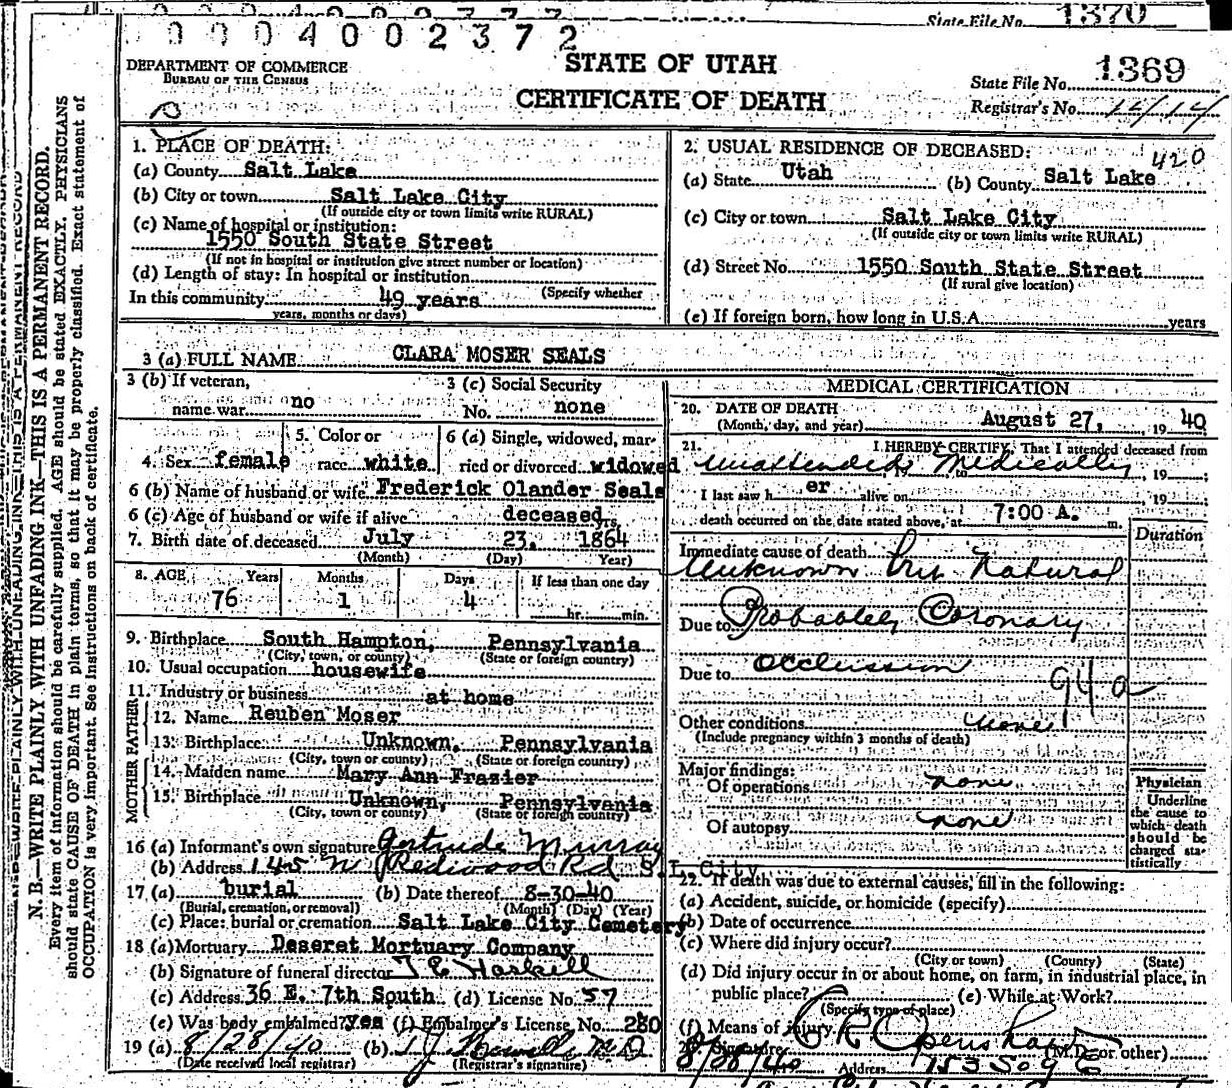 State File No. 1370
0 0 0 4 0 0 2 3 7 2
DEPARTMENT OF COMMERCE
BUREAU OF THE CENSUS
STATE OF UTAH
CERTIFICATE OF DEATH
State File No. 1369
Registrar's No. 1414
N. B.—WRITE PLAINLY WITH UNFADING INK—THIS IS A PERMANENT RECORD.
Every item of information should be carefully supplied. AGE should be stated EXACTLY. PHYSICIANS
should state CAUSE OF DEATH in plain terms, so that it may be properly classified. Exact statement of
OCCUPATION is very important. See instructions on back of certificate.
1. PLACE OF DEATH:
(a) County Salt Lake
(b) City or town Salt Lake City
(If outside city or town limits write RURAL)
(c) Name of hospital or institution:
1550 South State Street
(If not in hospital or institution give street number or location)
(d) Length of stay: In hospital or institution
(Specify whether
In this community 49 years
years, months or days)
2. USUAL RESIDENCE OF DECEASED: 420
(a) State Utah (b) County Salt Lake
(c) City or town Salt Lake City
(If outside city or town limits write RURAL)
(d) Street No. 1550 South State Street
(If rural give location)
(e) If foreign born, how long in U.S.A. years
3 (a) FULL NAME CLARA MOSER SEALS
3 (b) If veteran,
name war no
3 (c) Social Security
No. none
4. Sex female
5. Color or
race white
6 (a) Single, widowed, mar-
ried or divorced widowed
6 (b) Name of husband or wife Frederick Olander Seals
6 (c) Age of husband or wife if alive deceased yrs.
7. Birth date of deceased July 23, 1864
(Month) (Day) Year)
8. AGE Years Months Days If less than one day
76 1 4 hr. min.
9. Birthplace South Hampton, Pennsylvania
(City, town, or county) (State or foreign country)
10. Usual occupation housewife
11. Industry or business at home
FATHER
12. Name Reuben Moser
13. Birthplace Unknown, Pennsylvania
(City, town or county) (State or foreign country)
MOTHER
14. Maiden name Mary Ann Frazier
15. Birthplace Unknown, Pennsylvania
(City, town or county) (State or foreign country)
16 (a) Informant's own signature Gertrude Murray
(b) Address 145 N Redwood Rd S.L.City
17 (a) burial (b) Date thereof 8-30-40
(Burial, cremation, or removal) (Month) (Day) (Year)
(c) Place: burial or cremation Salt Lake City Cemetery
18 (a) Mortuary Deseret Mortuary Company
(b) Signature of funeral director J E Haskell
(c) Address 36 E. 7th South (d) License No. 57
(e) Was body embalmed? yes (f) Embalmer's License No. 280
19 (a) 8/28/40 (b) T J Howells M D
(Date received local registrar) (Registrar's signature)
MEDICAL CERTIFICATION
20. DATE OF DEATH
(Month, day, and year) August 27, 19 40
21. I HEREBY CERTIFY, That I attended deceased from
Unattended Medically, 19 ;
I last saw h er alive on , 19 ;
death occurred on the date stated above, at 7:00 A. m.
Duration
Immediate cause of death
Unknown but Natural
Due to Probably Coronary
Due to occlussion
94a
Other conditions none
(Include pregnancy within 3 months of death)
Major findings:
Of operations none
Of autopsy none
Physician
Underline
the cause to
which death
should be
charged sta-
tistically
22. If death was due to external causes, fill in the following:
(a) Accident, suicide, or homicide (specify)
(b) Date of occurrence
(c) Where did injury occur?
(City or town) (County) (State)
(d) Did injury occur in or about home, on farm, in industrial place, in
public place? (e) While at Work?
(Specify type of place)
(f) Means of injury
C R Openshaw (M.D. or other)
8/28/40 Address 153 So 9 E